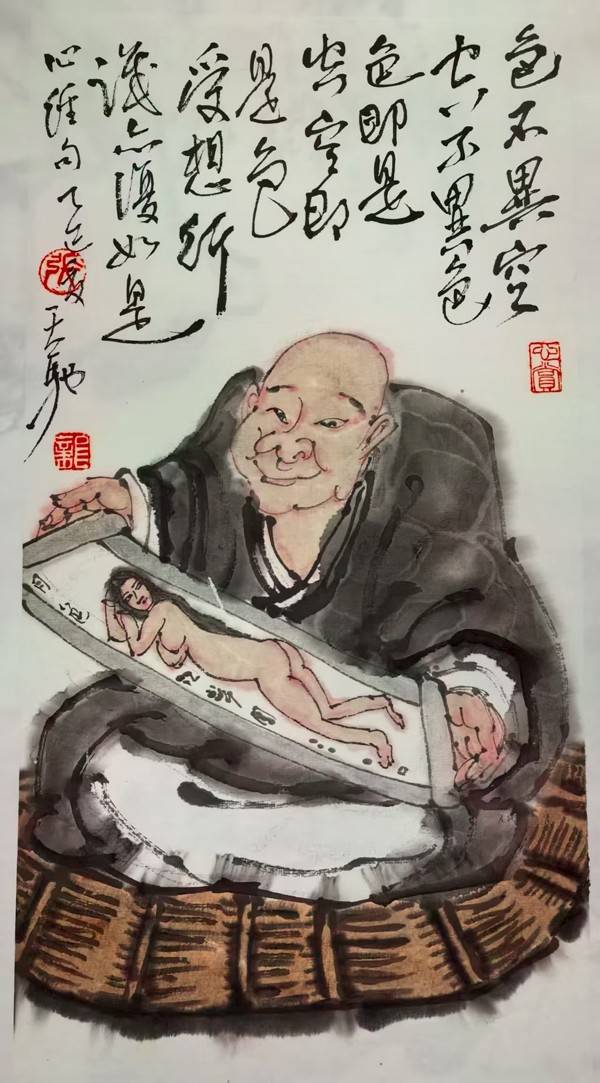 色不異空
空不異色
色即是
空空即
是色
受想行
識亦復如是
心經句
天馳
張